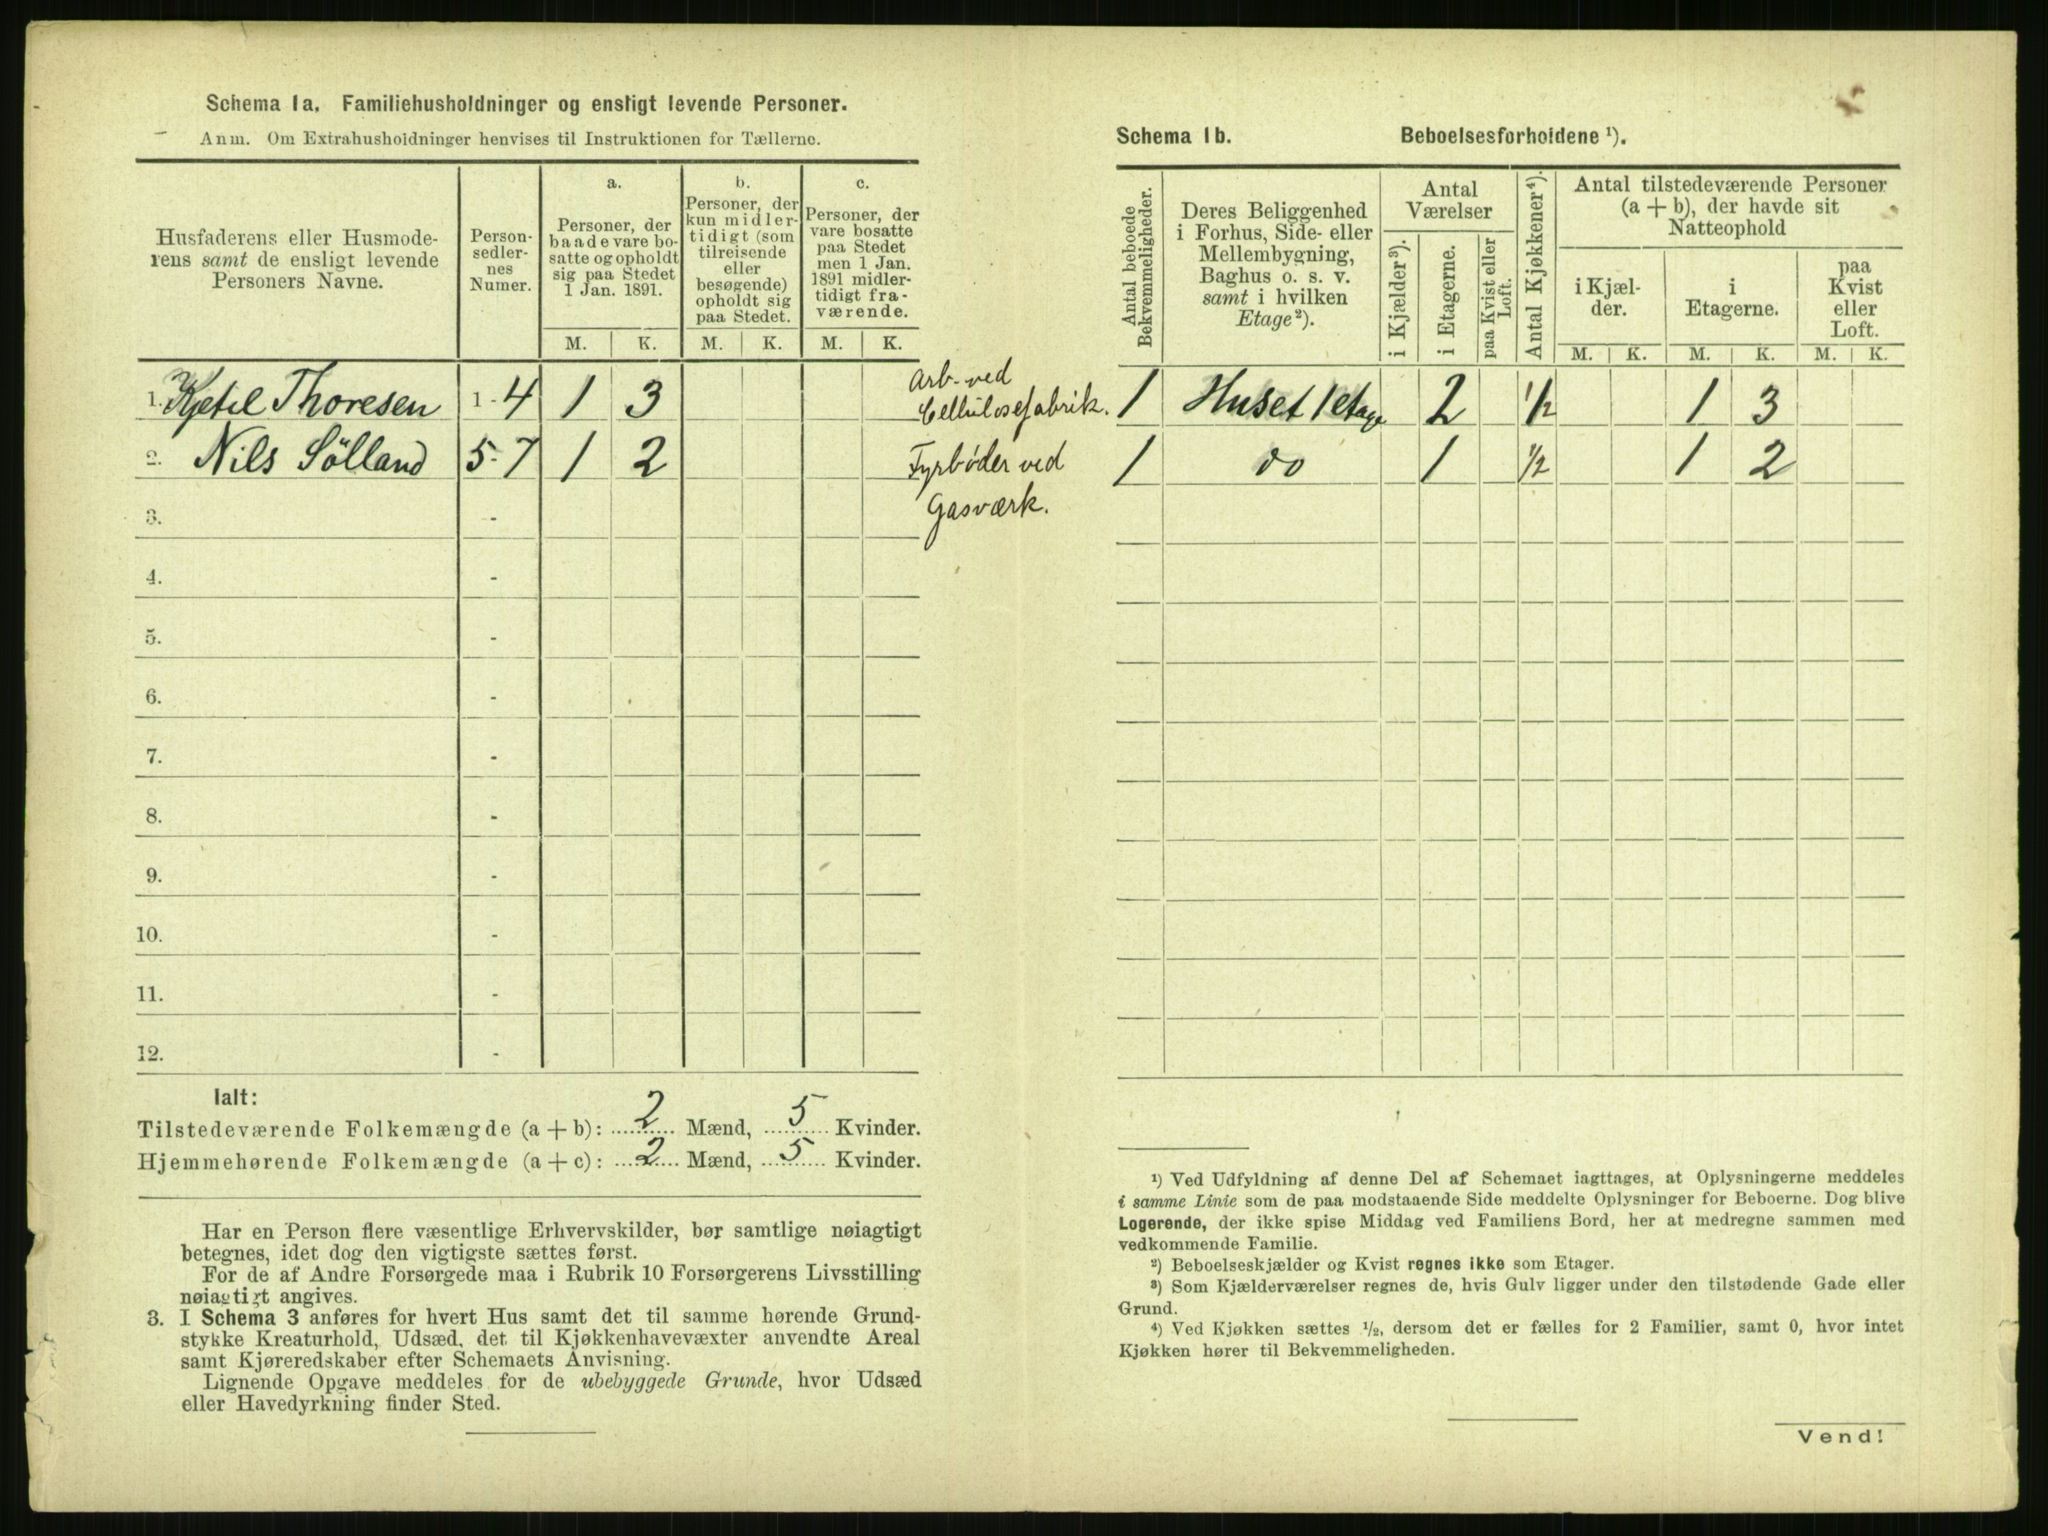 Schema 1a. Familiehusholdninger og ensligt levende Personer.
Anm. Om Extrahusholdninger henvises til Instruktionen for Tællerne.
Husfaderens eller Husmode-
rens samt de ensligt levende
Personers Navne.
Person-
sedler-
nes
Numer.
a.
Personer, der
baade vare bo-
satte og opholdt
sig paa Stedet
1 Jan. 1891.
b.
Personer, der
kun midler-
tidigt (som
tilreisende
eller
besøgende)
opholdt sig
paa Stedet.
c.
Personer, der
vare bosatte
paa Stedet
men 1 Jan.
1891 midler-
tidigt fra-
værende.
M. K. M. K. M. K.
1. Kjetil Thoresen 1-4 1 3
Arb. ved
Cellulosefabrik.
2. Nils Sölland 5-7 1 2
Fyrbøder ved
Gasværk.
3. -
4. -
5. -
6. -
7. -
8. -
9. -
10. -
11. -
12. -
Ialt:
Tilstedeværende Folkemængde (a + b): 2 Mænd, 5 Kvinder.
Hjemmehørende Folkemængde (a + c): 2 Mænd, 5 Kvinder.
Har en Person flere væsentlige Erhvervskilder, bør samtlige nøiagtigt
betegnes, idet dog den vigtigste sættes først.
For de af Andre Forsørgede maa i Rubrik 10 Forsørgerens Livsstilling
nøiagtigt angives.
3. I Schema 3 anføres for hvert Hus samt det til samme hørende Grund-
stykke Kreaturhold, Udsæd, det til Kjøkkenhavevæxter anvendte Areal
samt Kjøreredskaber efter Schemaets Anvisning.
Lignende Opgave meddeles for de ubebyggede Grunde, hvor Udsæd
eller Havedyrkning finder Sted.
Schema 1b. Beboelsesforholdene ¹).
Antal beboede
Bekvemmeligheder.
Deres Beliggenhed
i Forhus, Side- eller
Mellembygning,
Baghus o. s. v.
samt i hvilken
Etage ²).
Antal
Værelser
i Kjælder ³).
i Etagerne.
paa Kvist eller
Loft.
Antal Kjøkkener ⁴).
Antal tilstedeværende Personer
(a + b), der havde sit
Natteophold
i Kjæl-
der.
i
Etagerne.
paa
Kvist
eller
Loft.
M. K. M. K. M. K.
1 Huset 1 etage 2 ½ 1 3
1 do 1 ½ 1 2
¹) Ved Udfyldning af denne Del af Schemaet iagttages, at Oplysningerne meddeles
i samme Linie som de paa modstaaende Side meddelte Oplysninger for Beboerne. Dog blive
Logerende, der ikke spise Middag ved Familiens Bord, her at medregne sammen med
vedkommende Familie.
²) Beboelseskjælder og Kvist regnes ikke som Etager.
³) Som Kjælderværelser regnes de, hvis Gulv ligger under den tilstødende Gade eller
Grund.
⁴) Ved Kjøkken sættes ½, dersom det er fælles for 2 Familier, samt 0, hvor intet
Kjøkken hører til Bekvemmeligheden.
Vend!